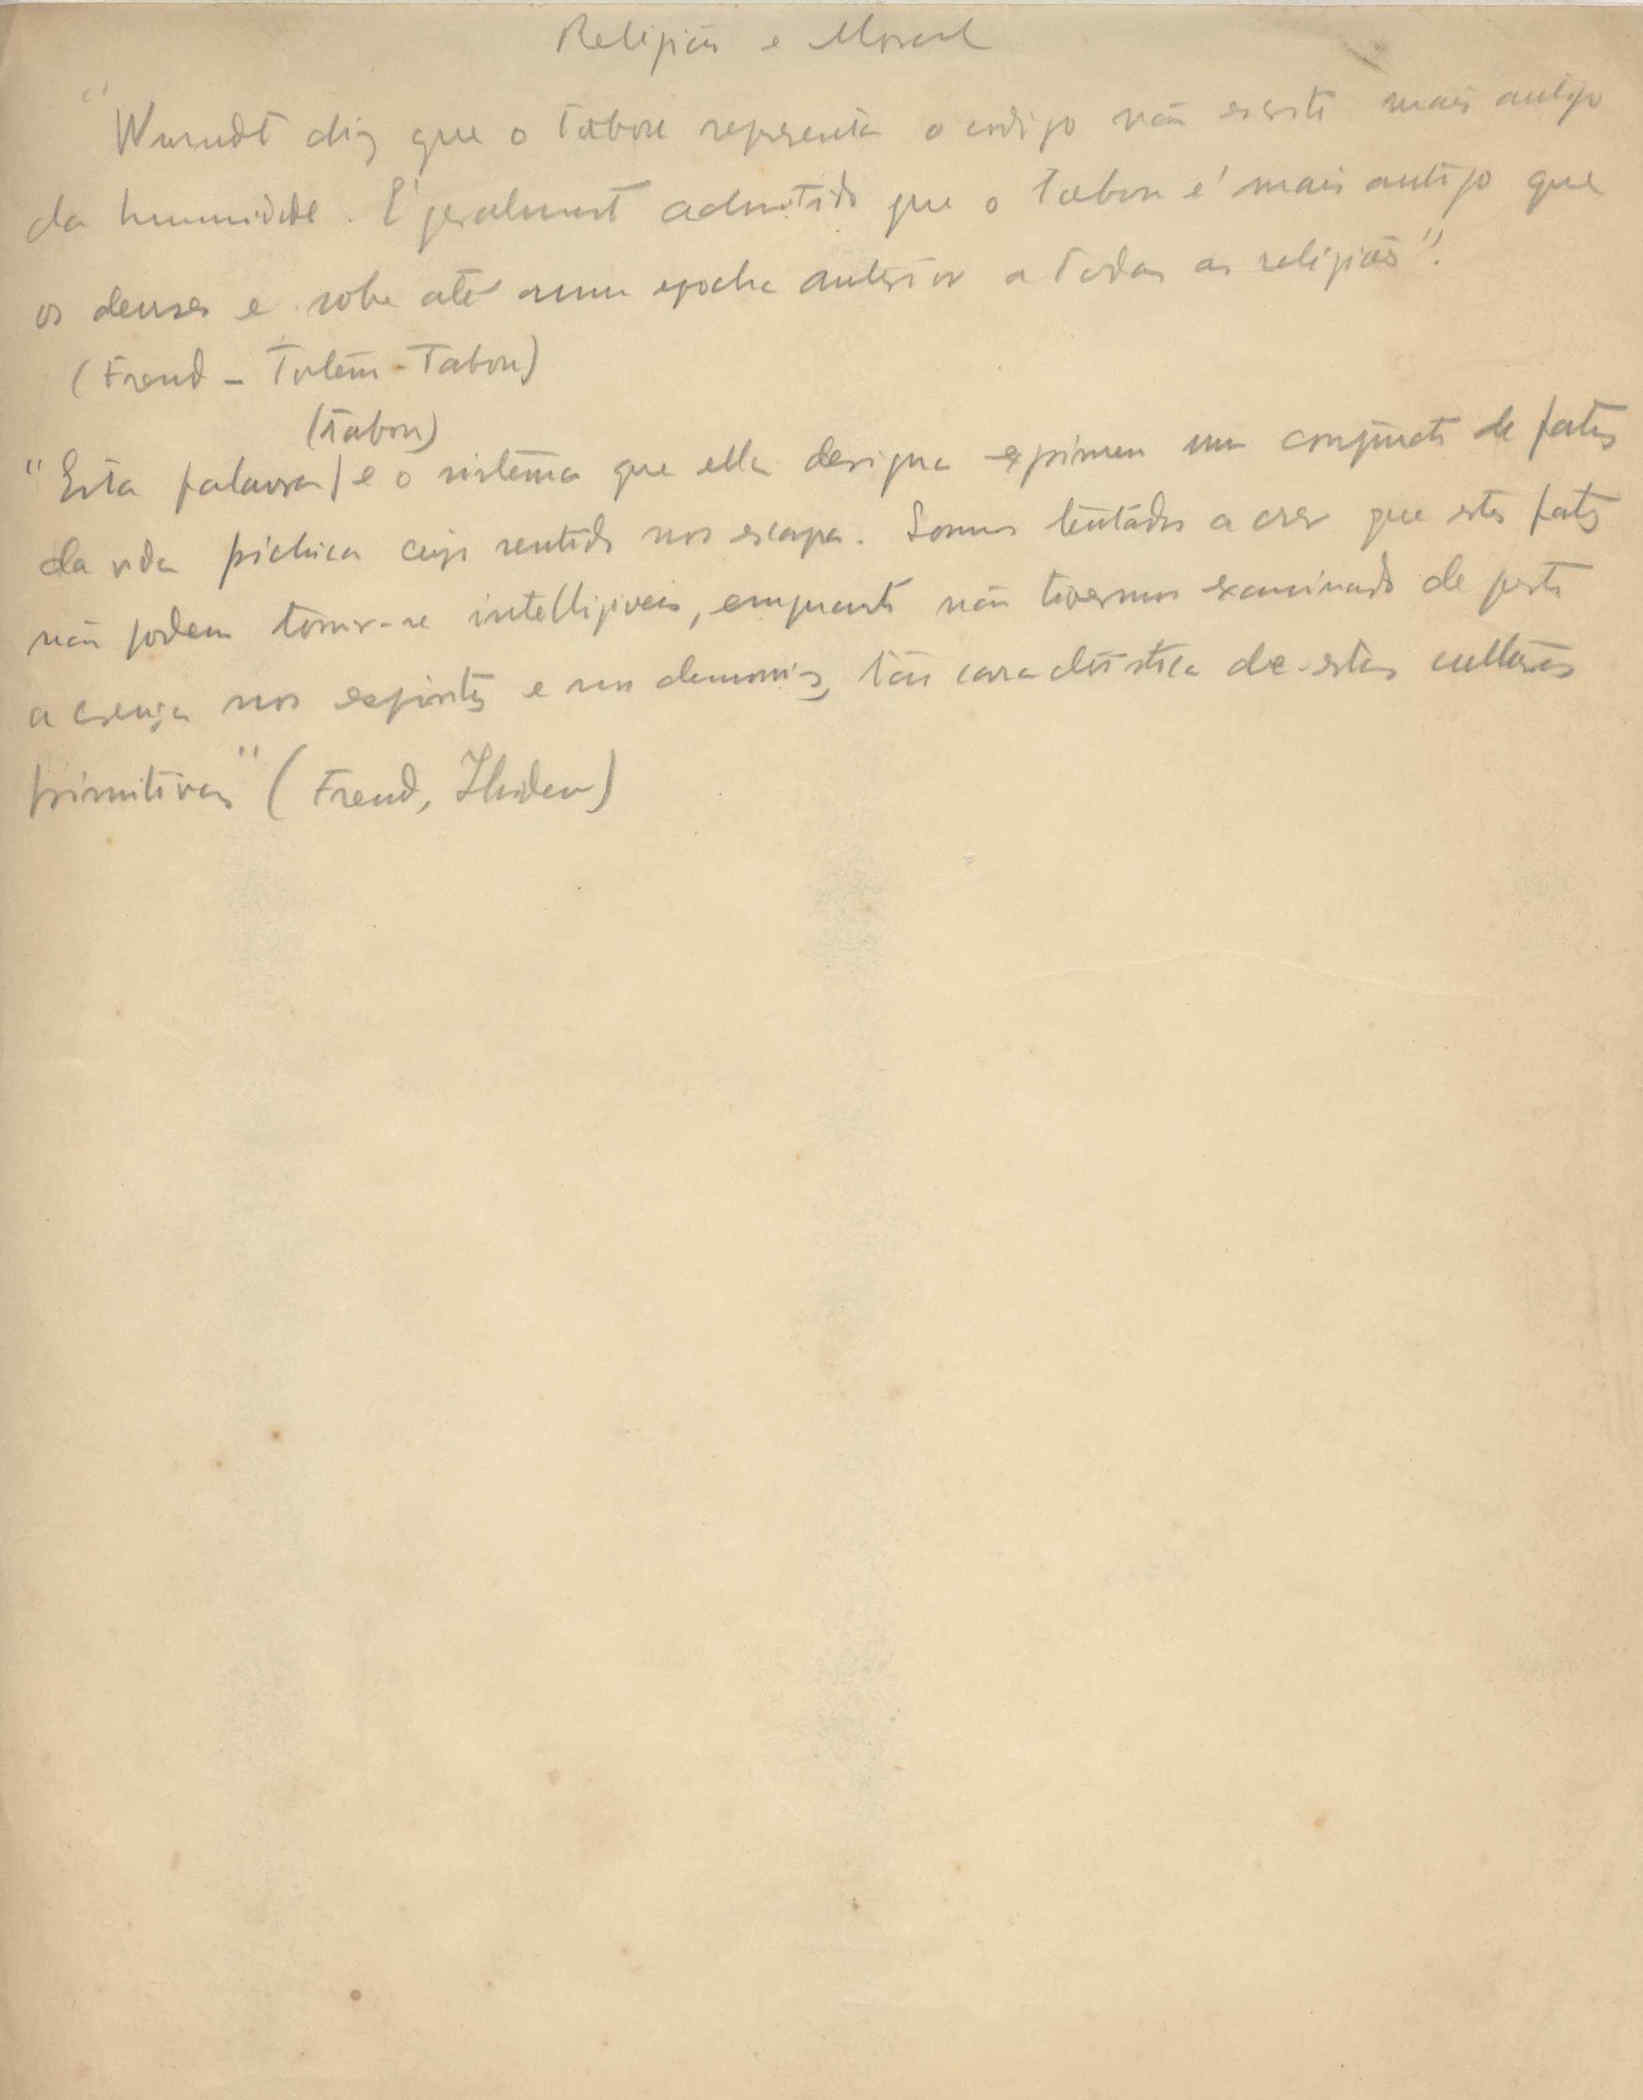 Religião e Moral
"Wundt diz que o tabou representa o codigo não escrito mais antigo
da humanidade. É geralmente admittido que o tabou é mais antigo que
os deuses e sobe até uma epocha anterior a todas as religiões".
(Freud - Totem - Tabou)
(tabou)
"Esta palavra e o sistema que ella designa exprimem um conjuncto de fatos
da vida psichica cujo sentido nos escapa. Somos tentados a crer que estes fatos
não podem tornar-se intelligiveis, emquanto não tivermos examinado de perto
a crença nos espiritos e nos demonios, tão caracteristica de estas culturas
primitivas" (Freud, Ibidem)